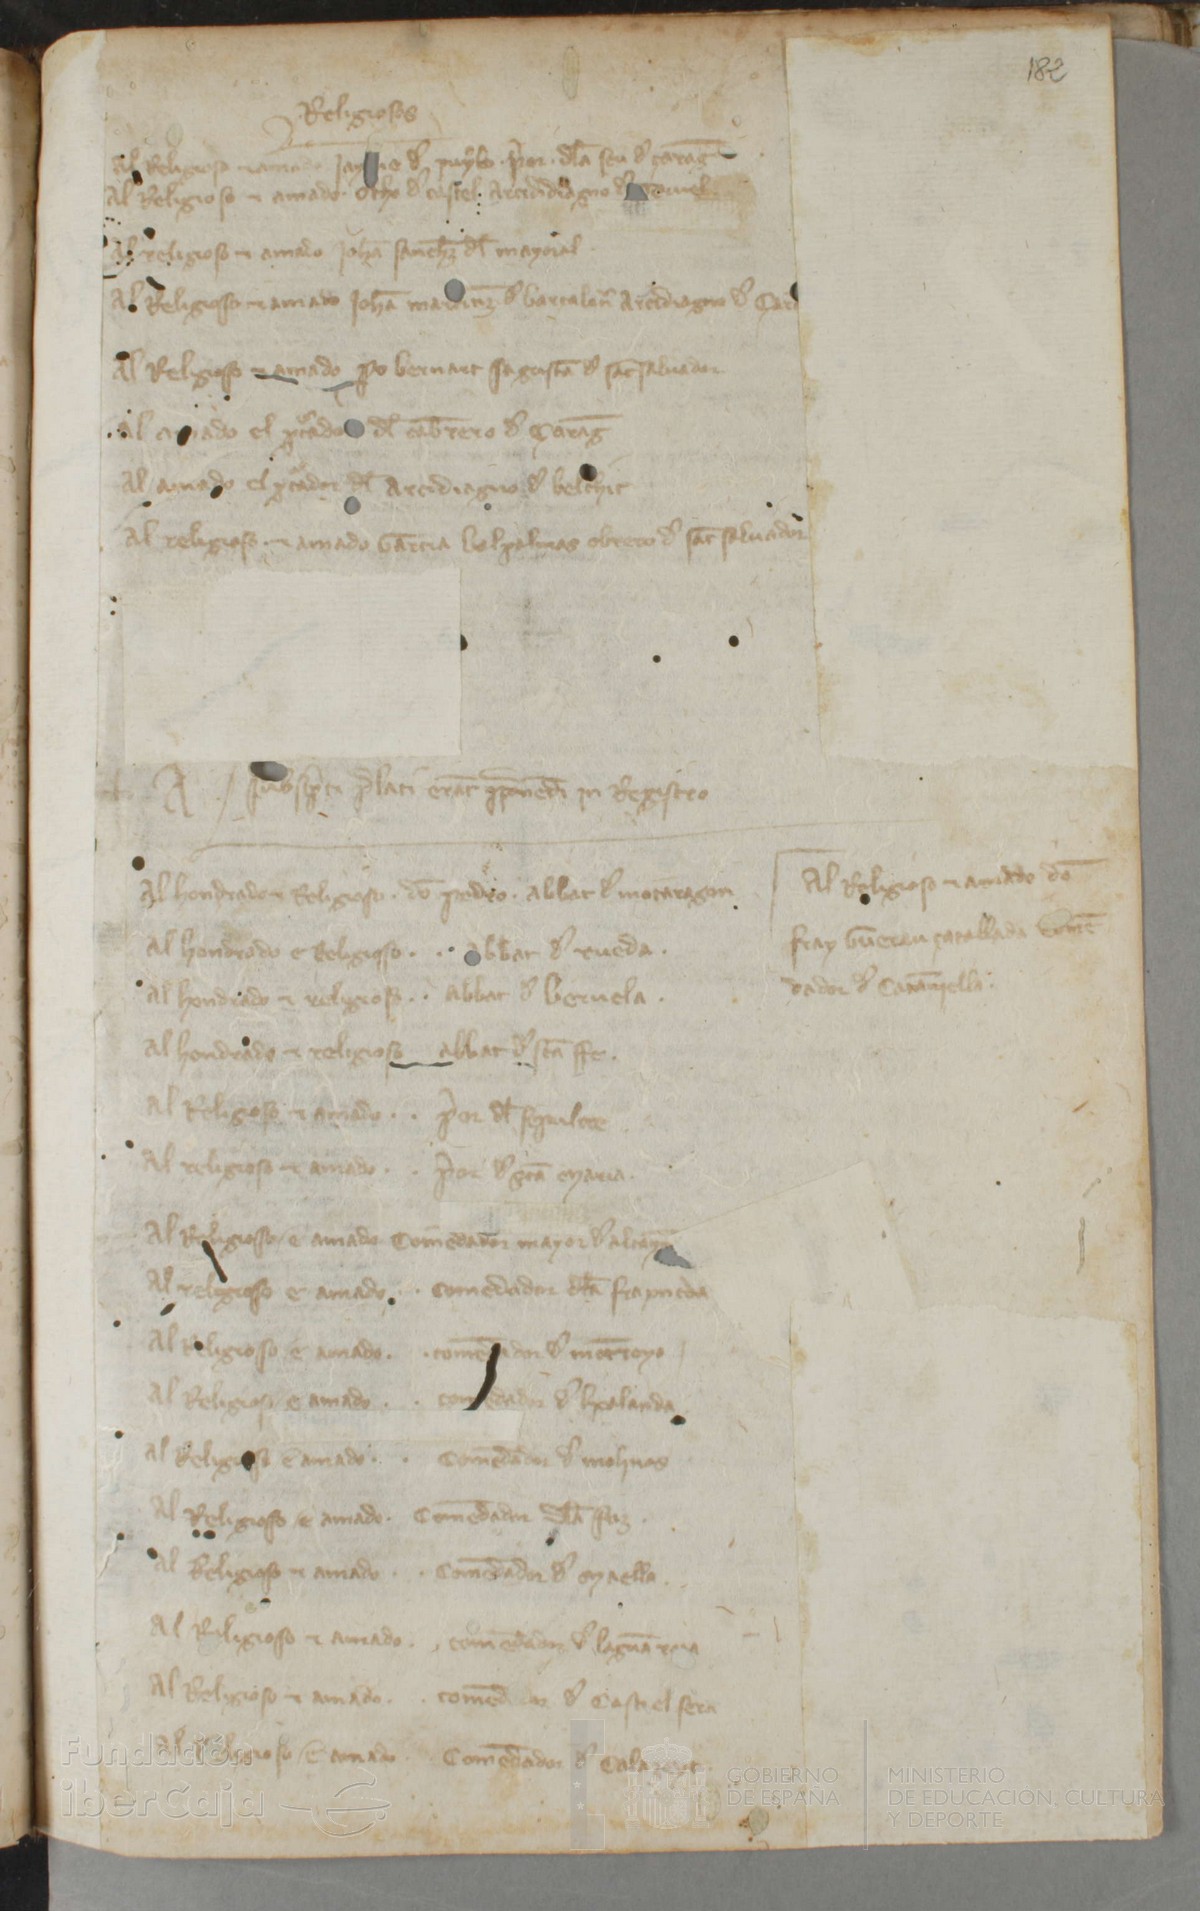 182
Religiosos
Al Religioso ⁊ amado Jayme d puybo p̃or dla seu d çarag̃
Al Religioso ⁊ amado Otho d castel Arcidiagno d Teruel
Al religioso ⁊ amado Johã sanchz dl mayoral
Al Religioso ⁊ amado Johã martinz d barcalan̄ Arcidiagno d Çar
Al Religioso ⁊ amado bernart sagristã d sãt saluador
Al amado el p̃cador dl cãbrero d Çarag̃
Al amado el p̃cador dl Arcidiagno d belchit
Al religioso ⁊ amado Garcia belpalmas obrero d sãt saluador
A p̃lati erãt in Registro
Al hondrado ⁊ Religioso dõ pedro abbat d mõtaragon
Al hondrado e Religioso . . abbat d rueda .
Al hondrado ⁊ religioso . . abbat d beruela .
Al hondrado ⁊ religioso abbat d sc̃a ffe .
Al Religioso ⁊ amado . . p̃or dl sepulcre
Al religioso ⁊ amado . . p̃or d sc̃a maria .
Al Religioso e amado Comẽdador mayor d alcany
Al religioso e amado . . comẽdador dla frapneda
Al Religioso e amado . . comẽdador d mõtroyo
Al Religioso e amado . . comẽdador d
Al Religioso e amado . . Comẽdador d molinos
Al Religioso e amado . Comẽdador dla
Al Religioso ⁊ amado . . Comẽdador d maella .
Al Religioso ⁊ amado . . comẽdador d
Al Religioso ⁊ amado . . comẽdador d Castielfera
Al Religioso e amado . . Comẽdador d Calazeyt
Al Religioso ⁊ amado dõ
fray comẽ
dador d
Fundación
iberCaja
GOBIERNO
DE ESPAÑA
MINISTERIO
DE EDUCACIÓN, CULTURA
Y DEPORTE